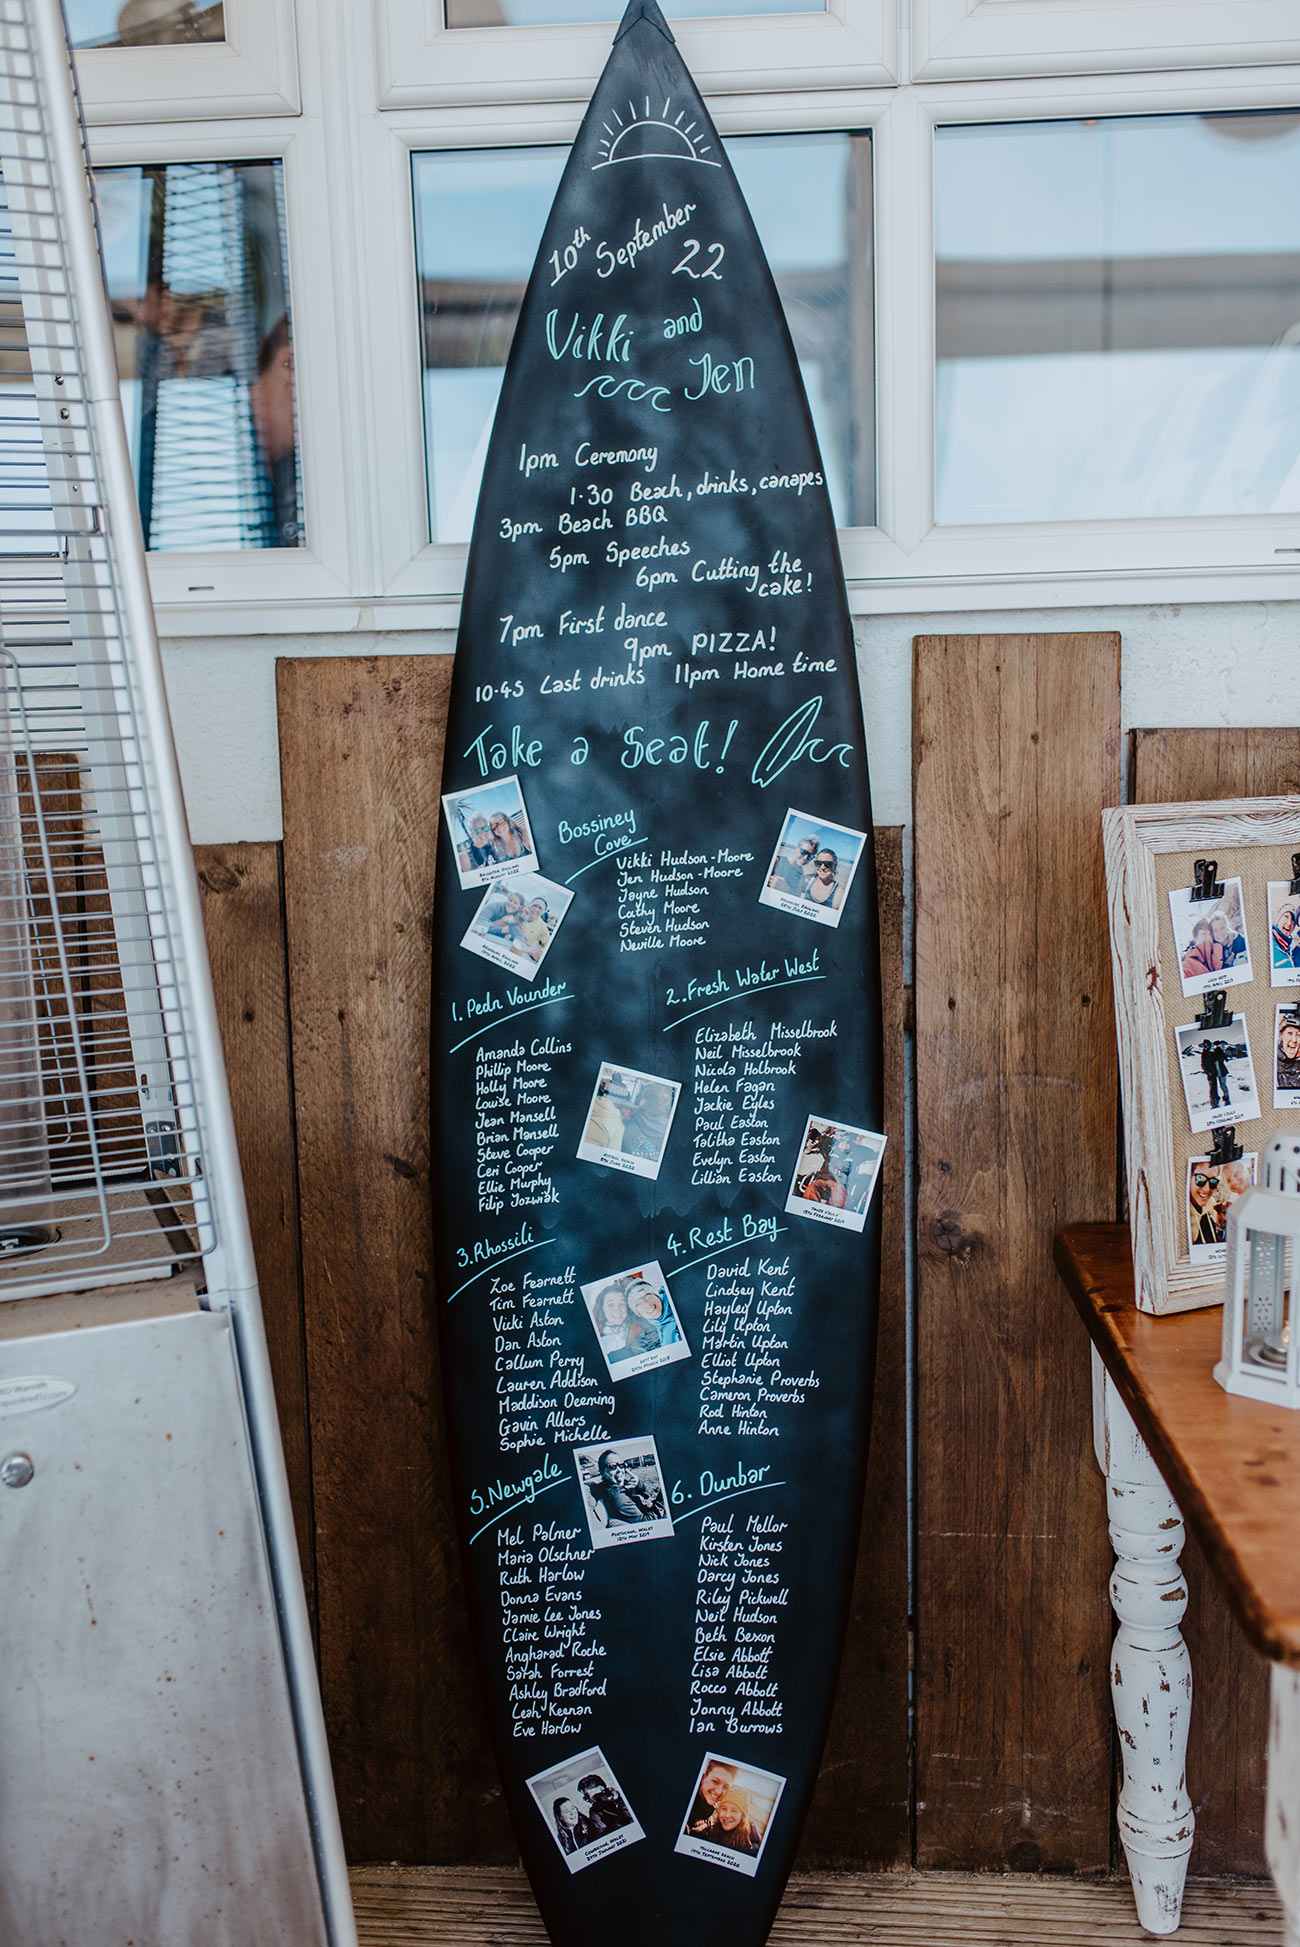 10th September 22
Vikki and
Jen
1pm Ceremony
1.30 Beach, drinks, canapes
3pm Beach BBQ
5pm Speeches
6pm Cutting the
cake!
7pm First dance
9pm PIZZA!
10.45 Last drinks 11pm Home time
Take a Seat!
Bossiney
Cove
Vikki Hudson-Moore
Jen Hudson-Moore
Jayne Hudson
Cathy Moore
Steven Hudson
Neville Moore
1. Pedn Vounder
Amanda Collins
Phillip Moore
Holly Moore
Louise Moore
Jean Mansell
Brian Mansell
Steve Cooper
Ceri Cooper
Ellie Murphy
Filip Jozwiak
2. Fresh Water West
Elizabeth Misselbrook
Neil Misselbrook
Nicola Holbrook
Helen Fagan
Jackie Eyles
Paul Easton
Talitha Easton
Evelyn Easton
Lillian Easton
3. Rhossili
Zoe Fearnett
Tim Fearnett
Vicki Aston
Dan Aston
Callum Perry
Lauren Addison
Maddison Deeming
Gavin Allers
Sophie Michelle
4. Rest Bay
David Kent
Lindsey Kent
Hayley Upton
Lily Upton
Martin Upton
Elliot Upton
Stephanie Proverbs
Cameron Proverbs
Rod Hinton
Anne Hinton
5. Newgale
Mel Palmer
Maria Olschner
Ruth Harlow
Donna Evans
Jamie Lee Jones
Claire Wright
Angharad Roche
Sarah Forrest
Ashley Bradford
Leah Keenan
Eve Harlow
6. Dunbar
Paul Mellor
Kirsten Jones
Nick Jones
Darcy Jones
Riley Pickwell
Neil Hudson
Beth Bexon
Elsie Abbott
Lisa Abbott
Rocco Abbott
Jonny Abbott
Ian Burrows
BRIGHTON, ENGLAND
FISTRAL BEACH
9TH JUNE 2022
REST BAY
PORTHCAWL, WALES
12TH MAY 2019
COWBRIDGE, WALES